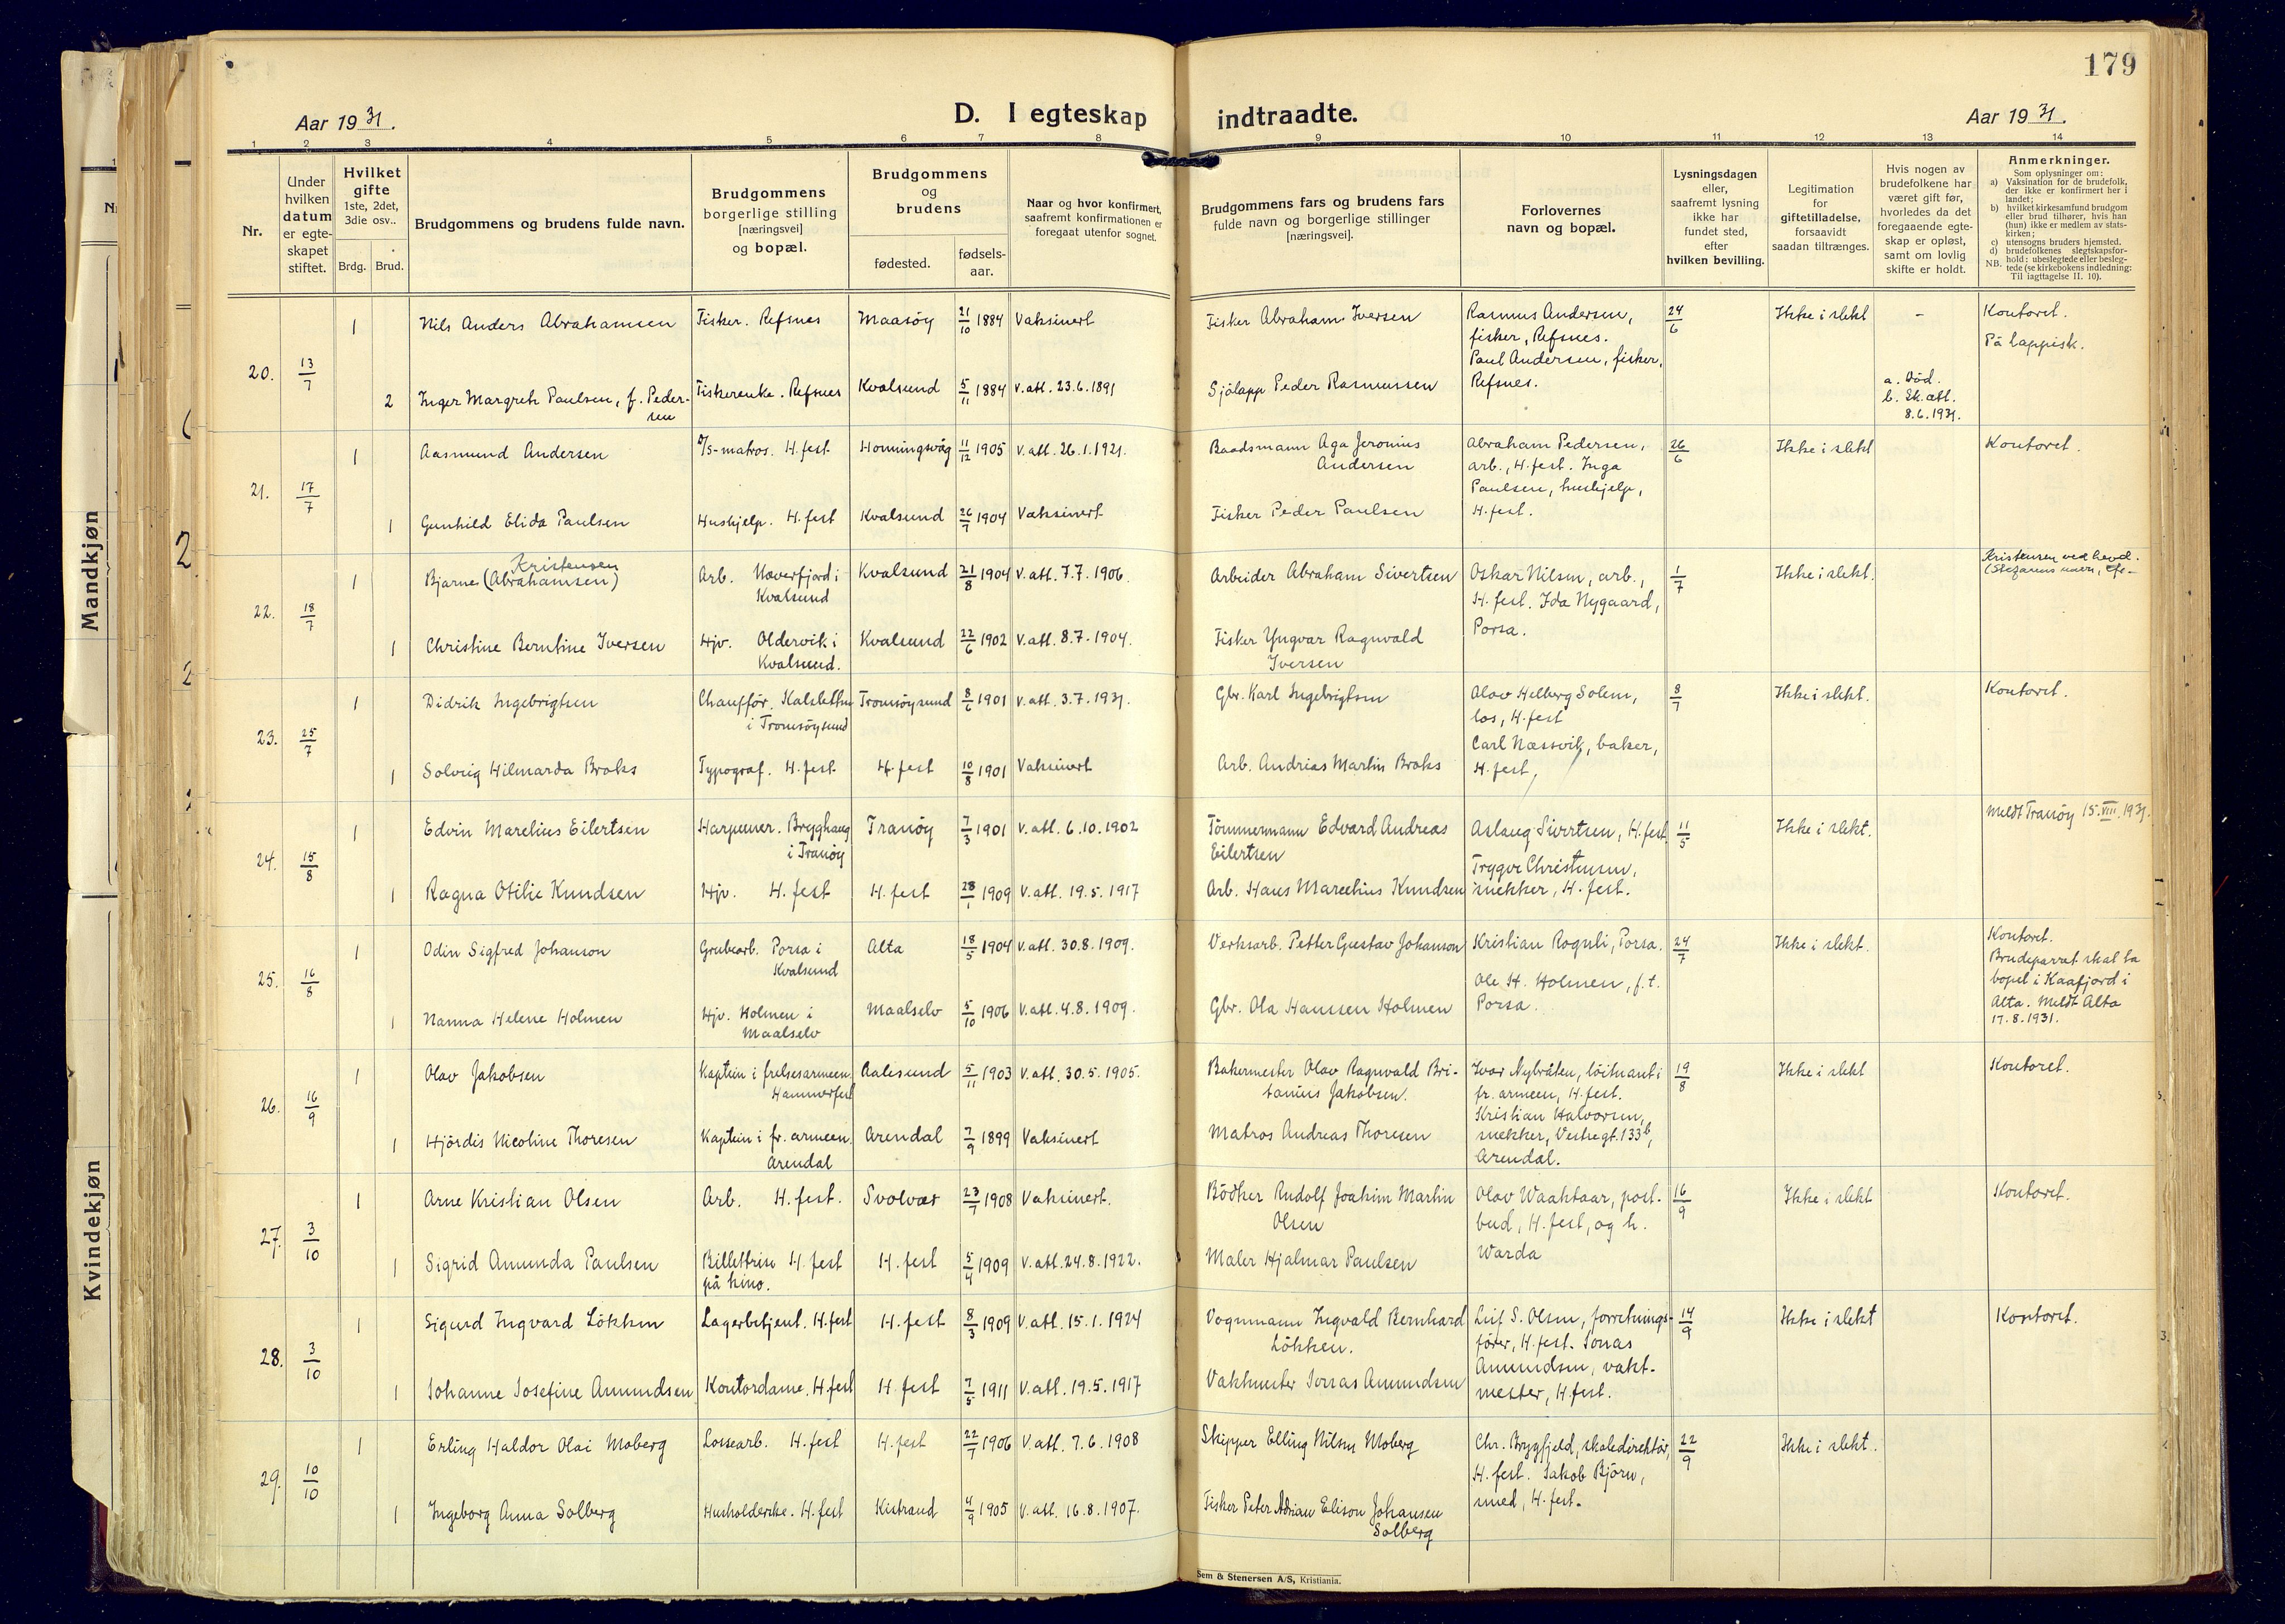 179
Aar 1931.
D. I egteskap indtraadte.
Aar 1931.
1 2 3 4 5 6 7 8 9 10 11 12 13 14
Nr.
Under hvilken datum er egteskapet stiftet.
Hvilket gifte 1ste, 2det, 3die osv..
Brdg. Brud.
Brudgommens og brudens fulde navn.
Brudgommens borgerlige stilling [næringsvei] og bopæl.
Brudgommens og brudens
fødested.
fødselsaar.
Naar og hvor konfirmert, saafremt konfirmationen er foregaat utenfor sognet.
Brudgommens fars og brudens fars fulde navn og borgerlige stillinger [næringsvei].
Forlovernes navn og bopæl.
Lysningsdagen eller, saafremt lysning ikke har fundet sted, efter hvilken bevilling.
Legitimation for giftetilladelse, forsaavidt saadan tiltrænges.
Hvis nogen av brudefolkene har været gift før, hvorledes da det foregaaende egteskap er opløst, samt om lovlig skifte er holdt.
Anmerkninger.
Som oplysninger om:
a) Vaksination for de brudefolk, der ikke er konfirmert her i landet;
b) hvilket kirkesamfund brudgom eller brud tilhører, hvis han (hun) ikke er medlem av statskirken;
c) utensogns bruders hjemsted.
d) brudefolkenes slegtskapsforhold: ubeslegtede eller beslegtede (se kirkebokens indledning: Til iagttagelse II. 10).
NB.
20. 13/7
1 Nils Anders Abrahamsen Fisker. Refsnes Maasöy 21/10 1884 Vaksinert Fisker Abraham Iversen
Rasmus Andersen, fisker, Refsnes. Paul Andersen, fisker, Refsnes.
24/6 Ikke i slekt - Kontoret. På lappisk.
2 Inger Margreth Paulsen, f. Pedersen Fiskerenke. Refsnes Kvalsund 5/11 1884 V. att. 23.6.1891 Sjölapp Peder Rasmussen
a. Död. b. Sk. att. 8.6.1931.
21. 17/7
1 Aasmund Andersen D/S-matros. H.fest Honningsvåg 11/12 1905 V. att. 26.1.1921. Baadsmann Aga Jeronius Andersen
Abraham Pedersen, arb., H.fest. Inga Paulsen, hushjelp, H.fest.
26/6 Ikke i slekt Kontoret.
1 Gunhild Elida Paulsen Hushjelp. H.fest Kvalsund 26/7 1904 Vaksinert Fisker Peder Paulsen
22. 18/7
1 Bjarne (Abrahamsen) Kristensen Arb. Neverfjord i Kvalsund Kvalsund 21/8 1904 V. att. 7.7.1906. Arbeider Abraham Sivertsen
Oskar Nilsen, arb., H.fest. Ida Nygaard, Porsa.
1/7 Ikke i slekt. Kristensen ved hend.
1 Christine Berntine Iversen Hjv. Oldervik i Kvalsund. Kvalsund 22/6 1902 V. att. 8.7.1904. Fisker Yngvar Ragnvald Iversen
23. 25/7
1 Didrik Ingebrigtsen Chauffør. Kalsletten i Tromsöysund Tromsöysund 8/6 1901 V. att. 3.7.1931. Gbr. Karl Ingebrigtsen
Olav Helberg Solem, los, H.fest Carl Næssvik, baker, H.fest,
8/7 Ikke i slekt. Kontoret.
1 Solveig Hilmarda Broks Typograf. H.fest H.fest 10/8 1901 Vaksinert Arb. Andrias Martin Broks
24. 15/8
1 Edvin Marelius Eilertsen Harpuner. Brygghaug i Tranöy Tranöy 7/3 1901 V. att. 6.10.1902 Tömmermann Edvard Andreas Eilertsen
Aslaug Sivertsen, H.fest Trygve Christensen, snekker, H.fest.
11/5 Ikke i slekt. Meldt Tranöy 15.VIII.1931.
1 Ragna Otilie Knudsen Hjv. H.fest H.fest 28/1 1909 V. att. 19.5.1917 Arb. Hans Marcelius Knudsen
25. 16/8
1 Odin Sigfred Johanson Grubearb. Porsa i Kvalsund Alta 18/5 1904 V. att. 30.8.1909. Verksarb. Petter Gustav Johanson
Kristian Rognli, Porsa. Ole H. Holmen, f.t. Porsa.
24/7 Ikke i slekt. Kontoret. Brudeparret skal ta bopel i Kaafjord i Alta. Meldt Alta 17.8.1931.
1 Nanna Helene Holmen Hjv. Holmen i Maalselv Maalselv 5/10 1906 V. att. 4.8.1909. Gbr. Ola Hanssen Holmen
26. 16/9
1 Olav Jakobsen Kaptein i frelsesarmeen. Hammerfest Aalesund 5/11 1903 V. att. 30.5.1905. Bakermester Olav Ragnvald Britanius Jakobsen.
Ivar Nybråten, löitnant i fr.armeen, H.fest. Kristian Halvorsen, snekker, Vestregt. 133b, Arendal.
19/8 Ikke i slekt Kontoret.
1 Hjördis Nicoline Thoresen Kaptein i fr.armeen. Arendal Arendal 7/9 1899 Vaksinert Matros Andreas Thoresen
27. 3/10
1 Arne Kristian Olsen Arb. H.fest. Svolvær 23/7 1908 Vaksinert. Bödker Rudolf Joakim Martin Olsen
Olav Waaktaar, postbud, H.fest, og h. Warda
16/9 Ikke i slekt Kontoret.
1 Sigrid Amunda Paulsen Billettrise på kino. H.fest H.fest 5/4 1909 V. att. 24.8.1922. Maler Hjalmar Paulsen
28. 3/10
1 Sigurd Ingvard Lökken Lagerbetjent. H.fest H.fest 8/3 1909 V. att. 15.1.1924 Vognmann Ingvald Bernhard Lökken.
Leif S. Olsen, forretningsförer, H.fest. Jonas Amundsen, vaktmester, H.fest.
14/9 Ikke i slekt Kontoret.
1 Johanne Josefine Amundsen Kontordame. H.fest H.fest 7/5 1911 V. att. 19.5.1917 Vaktmester Jonas Amundsen
29. 10/10
1 Erling Haldor Olai Moberg Lossearb. H.fest H.fest 22/7 1906 V. att. 7.6.1908 Skipper Elling Nilsen Moberg
Chr. Brygfjeld, skoledirektör, H.fest. Jakob Björn, smed, H.fest.
22/9 Ikke i slekt.
1 Ingeborg Anna Solberg Husholderske. H.fest Kistrand 4/9 1905 V. att. 16.8.1907. Fisker Peter Adrian Elison Johansen Solberg
Sem & Stenersen A/S, Kristiania.
Mandkjøn
Kvindekjøn